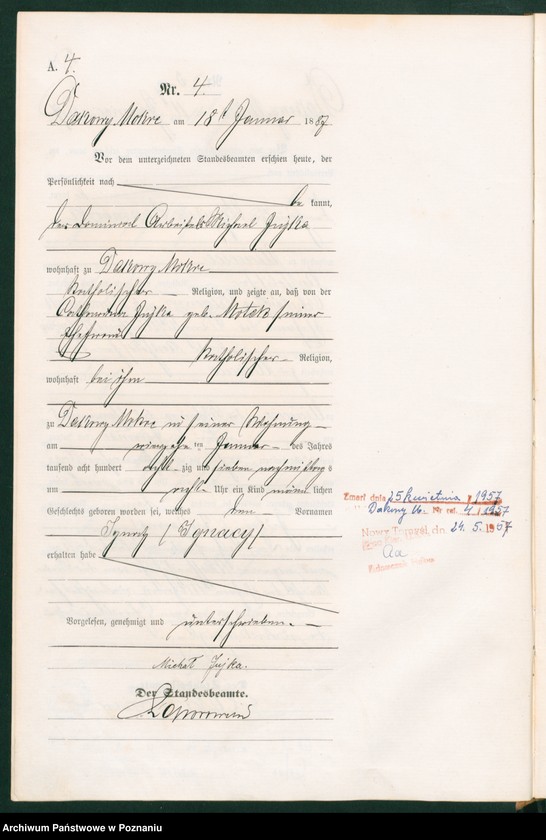 A. 4.
Nr. 4.
Dakowy Mokre am 18t Januar 1887
Vor dem unterzeichneten Standesbeamten erschien heute, der
Persönlichkeit nach
be kannt,
der Dominial Arbeiter Michael
wohnhaft zu Dakowy Mokre
katholischer Religion, und zeigte an, daß von der
geb. Motek seiner
Ehefrau
katholischer Religion,
wohnhaft bei ihm
zu Dakowy Mokre in seiner Wohnung
am ten Januar des Jahres
tausend acht hundert acht zig und sieben nachmittag s
um acht Uhr ein Kind männ lichen
Geschlechts geboren worden sei, welches den Vornamen
Ignatz (Ignacy)
erhalten habe
Vorgelesen, genehmigt und unterschrieben.
Michał
Der Standesbeamte.
Zmarł dnia 25 kwietnia 1957
Dakowy M. Nr rej. 4/1957
dn. 24. 5. 1957
Archiwum Państwowe w Poznaniu